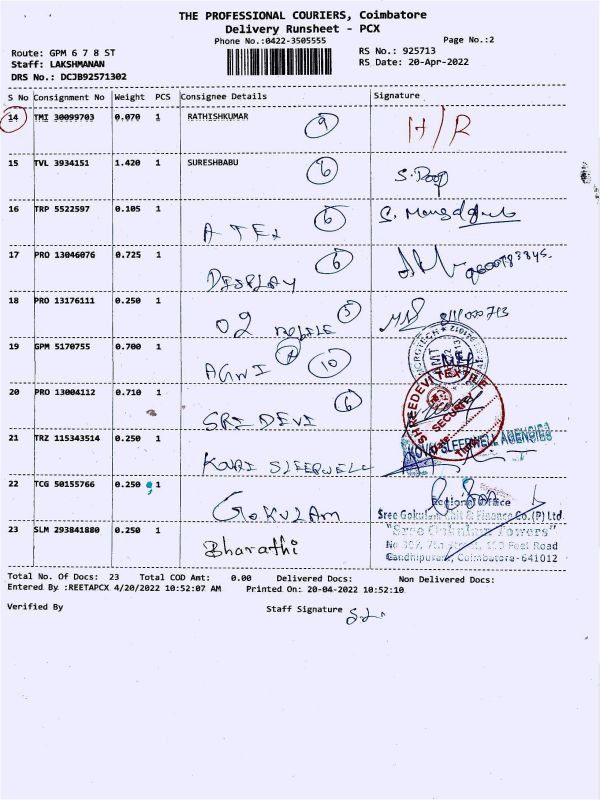 THE PROFESSIONAL COURIERS, Coimbatore
Delivery Runsheet - PCX
Phone No.:0422-3505555
Page No.:2
Route: GPM 6 7 8 ST
Staff: LAKSHMANAN
DRS No.: DCJB92571302
RS No.: 925713
RS Date: 20-Apr-2022
S No Consignment No Weight PCS Consignee Details Signature
14 TMI 30099703 0.070 1 RATHISHKUMAR 9 H/R
15 TVL 3934151 1.420 1 SURESHBABU 6
16 TRP 5522597 0.105 1 6
17 PRO 13046076 0.725 1 DISPLAY 6
18 PRO 13176111 0.250 1 O2 MOBILE 5
19 GPM 5170755 0.700 1 AGNI 10
20 PRO 13004112 0.710 1 SRI DEVI 6
SHREEDEVI TEXTILE
SECURITY
21 TRZ 115343514 0.250 1 KOVAI SLEEPWELL
KOVAI SLEEPWELL AGENCIES
22 TCG 50155766 0.250 1 GOKULAM
Regional Office
Sree Gokulam Chit & Finance Co.(P) Ltd.
23 SLM 293841880 0.250 1 Bharathi
"Sree Gokulam Towers"
Feet Road
Gandhipuram, Coimbatore-641012
Total No. Of Docs: 23 Total COD Amt: 0.00 Delivered Docs: Non Delivered Docs:
Entered By :REETAPCX 4/20/2022 10:52:07 AM Printed On: 20-04-2022 10:52:10
Verified By
Staff Signature